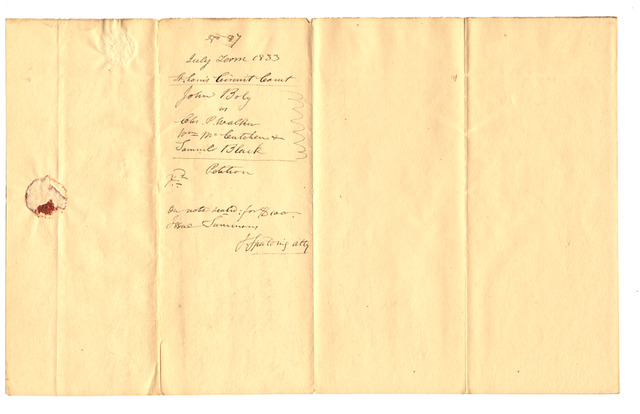 No 87
July Term 1833
St Louis Circuit Court
John Boly
vs
Chs. P. Walker
Wm Mc Cutchen &
Samuel Black
Petition
on note sealed for $100
Issue Summons
J Spalding atty